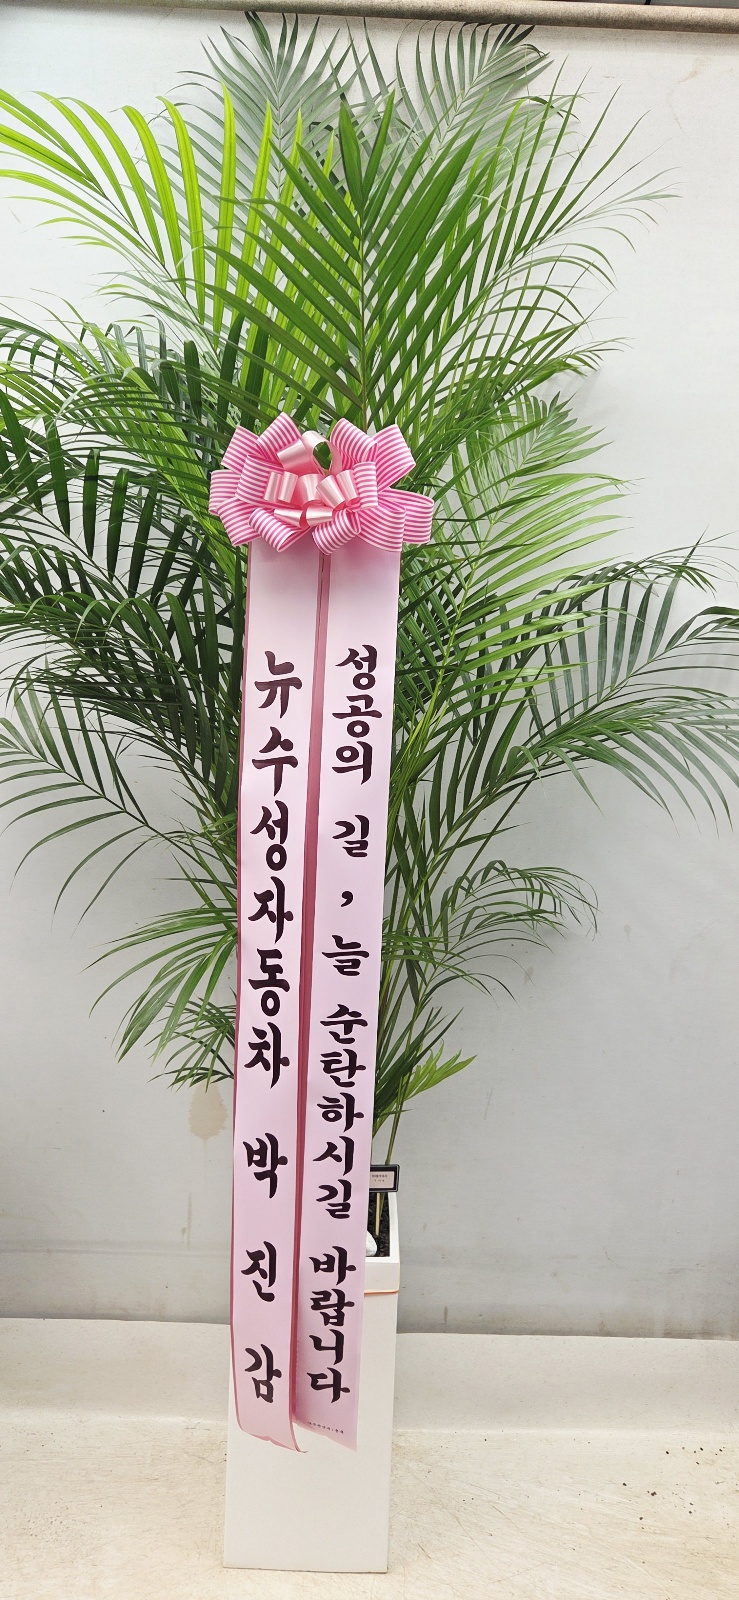 성공의 길, 늘 순탄하시길 바랍니다
뉴수성자동차 박진감